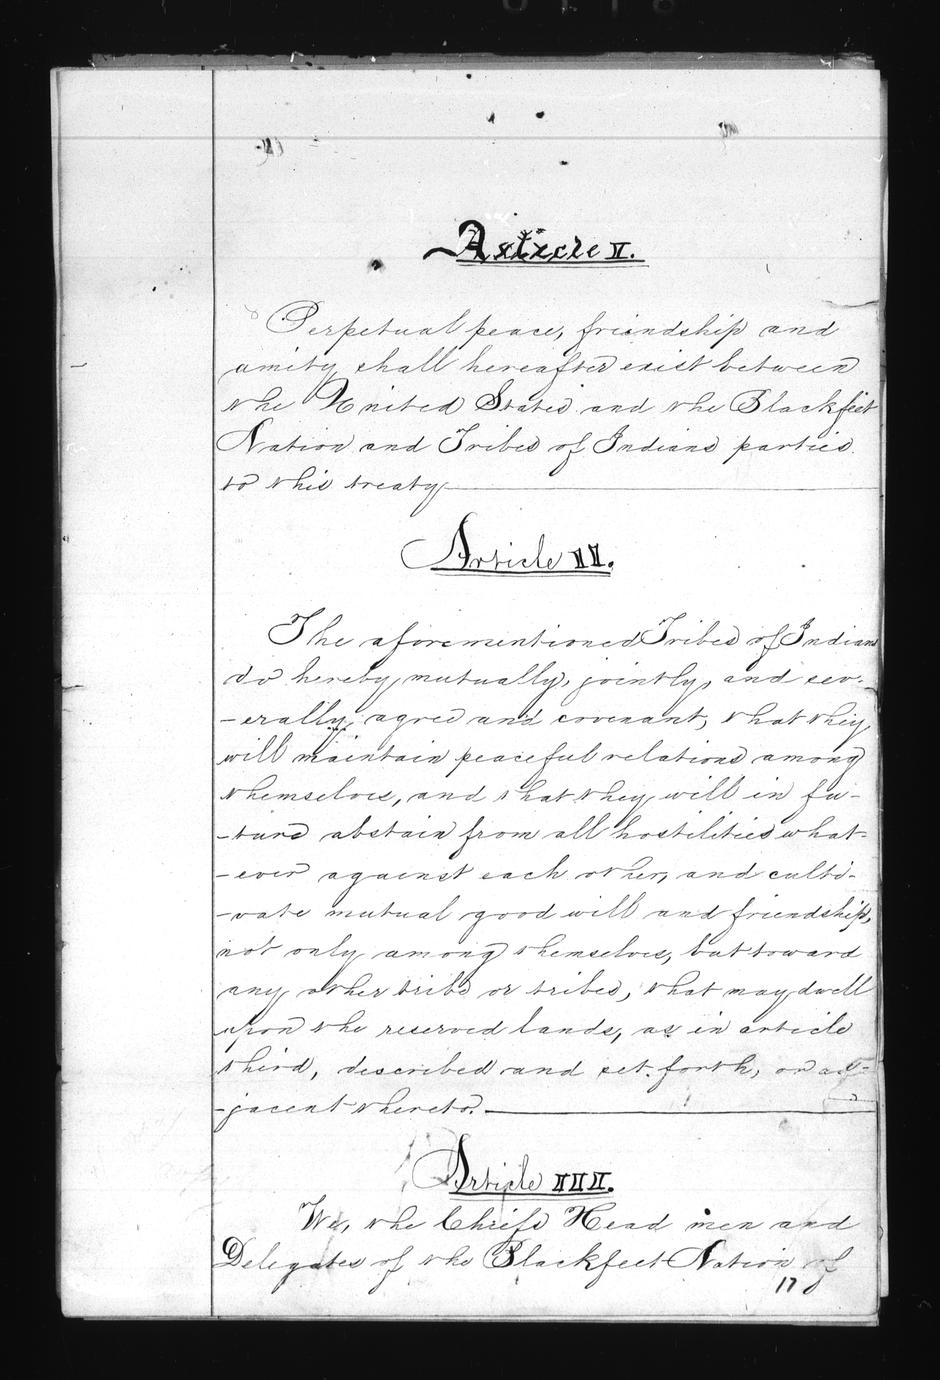 Article I.
Perpetual peace, friendship and
amity shall hereafter exist between
the United States and the Blackfeet
Nation and Tribes of Indians parties
to this treaty
Article II.
The aforementioned Tribes of Indians
do hereby mutually, jointly, and sev-
-erally, agree and covenant, that they
will maintain peaceful relations among
themselves, and that they will in fu-
-ture abstain from all hostilities what-
-ever against each other, and culti-
-vate mutual good will and friendship,
not only among themselves, but toward
any other tribe or tribes, that may dwell
upon the reserved lands, as in article
third, described and set forth, or ad-
-jacent thereto.
Article III.
We, the Chiefs Head men and
Delegates of the Blackfeet Nation of
17